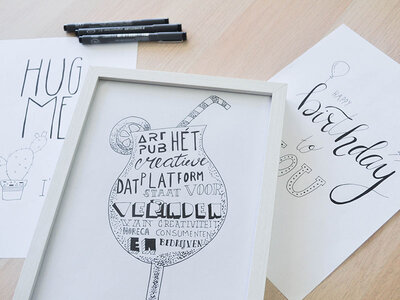 HUG
ME
I'
ART HÉT
PUB
creatieve
DAT PLATFORM
STAAT VOOR
VERBINDEN
VAN CREATIVITEIT
HORECA CONSUMENTEN
EN BEDRIJVEN
HAPPY
birthday
to